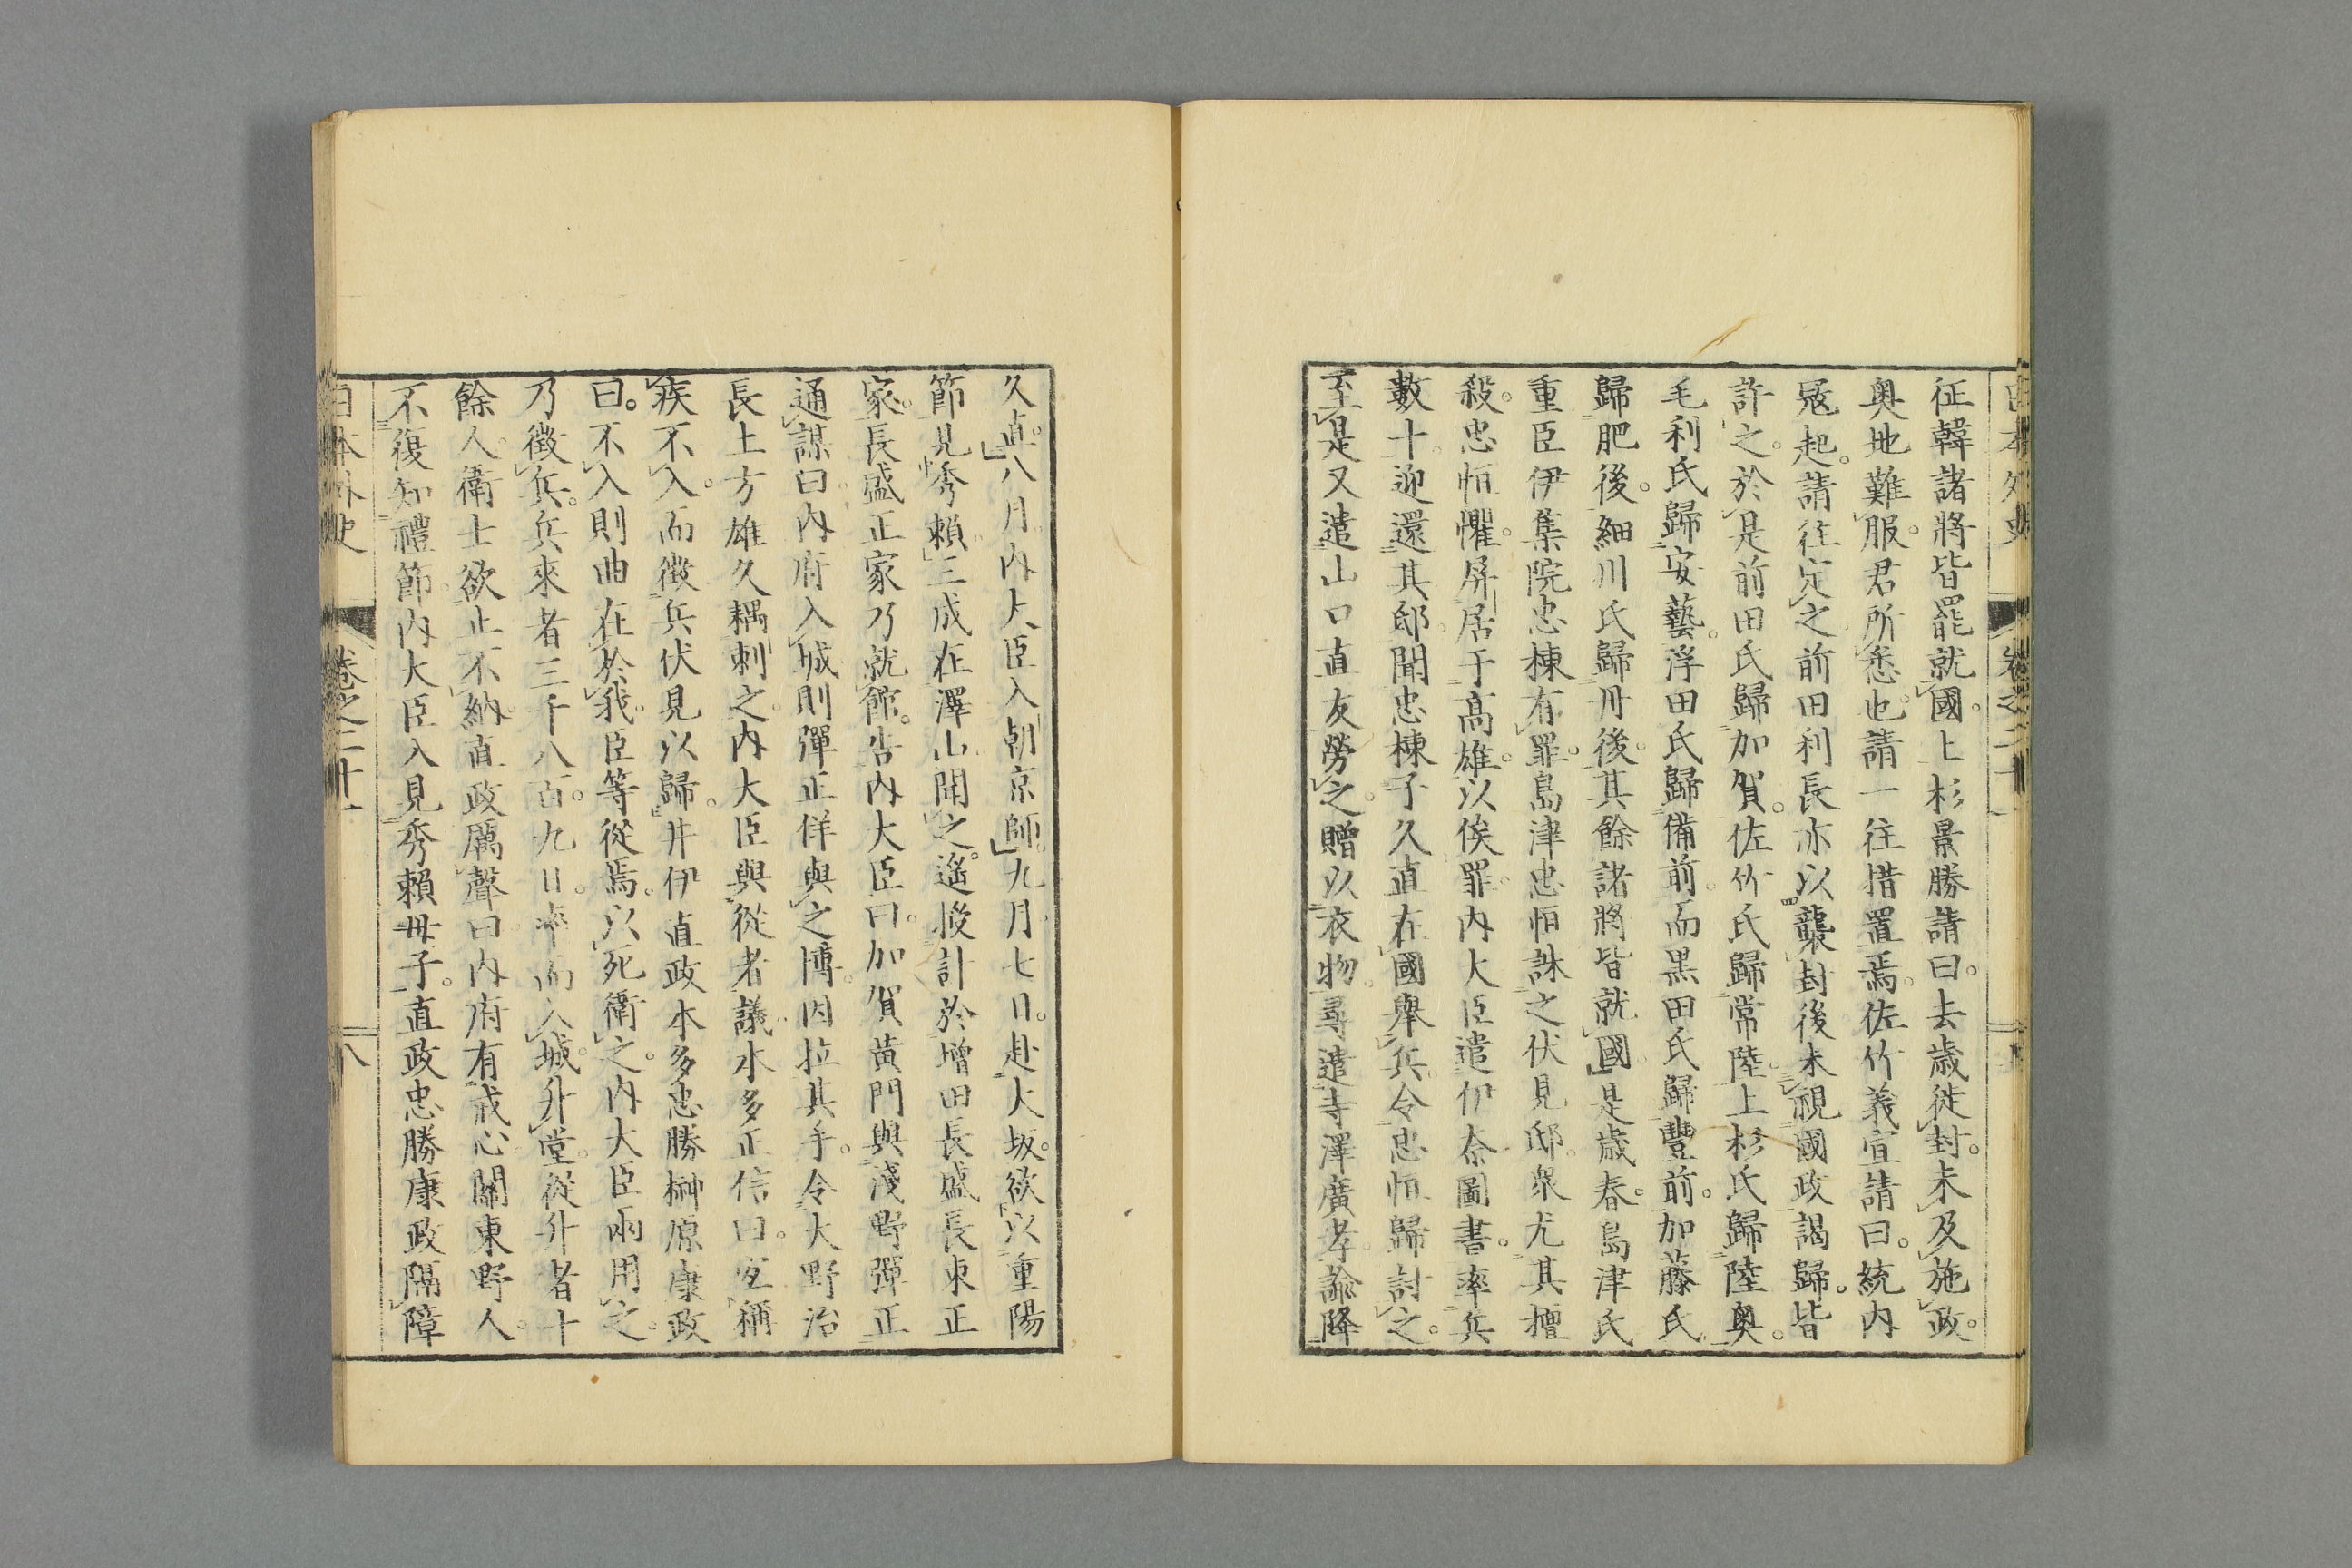 日本外史 卷之二十一
征韓諸將皆罷就國。上杉景勝請曰。去歲徙封。未及施政。
奥地難服。君所悉也。請一往措置焉。佐竹義宣請曰。統内
冦起。請往定之。前田利長亦以襲封後未視國政謁歸。皆
許之。於是前田氏歸加賀。佐竹氏歸常陸。上杉氏歸陸奥。
毛利氏歸安藝。浮田氏歸備前。而黒田氏歸豐前。加藤氏
歸肥後。細川氏歸丹後。其餘諸將皆就國。是歲春。島津氏
重臣伊集院忠棟有罪。島津忠恒誅之伏見邸。衆尤其擅
殺。忠恒懼。屏居于高雄。以俟罪。内大臣遣伊奈圖書。率兵
數十。迎還其邸。聞忠棟子久直在國舉兵。令忠恒歸討之。
至是又遣山口直友勞之。贈以衣物。尋遣寺澤廣孝諭降
久直。八月。内大臣入朝京師。九月七日。赴大坂。欲以重陽
節見秀賴。三成在澤山聞之。遙授計於增田長盛長束正
家。長盛正家乃就館。告内大臣曰。加賀黄門與淺野彈正
通謀曰。内府入城則彈正佯與之博。因拉其手。令大野治
長上方雄久耦刺之。内大臣與從者議。水多正信曰。宜稱
疾不入。而徴兵伏見以歸。井伊直政本多忠勝榊原康政
曰。不入則曲在於我。臣等從焉。以死衛之。内大臣兩用之。
乃徴兵。兵來者三千八百。九日。率而入城。升堂。從升者十
餘人。衛士欲止不納。直政厲聲曰。内府有戒心。關東野人。
不復知禮節。内大臣入見秀賴母子。直政忠勝康政隔障
日本外史 卷之二十一 八